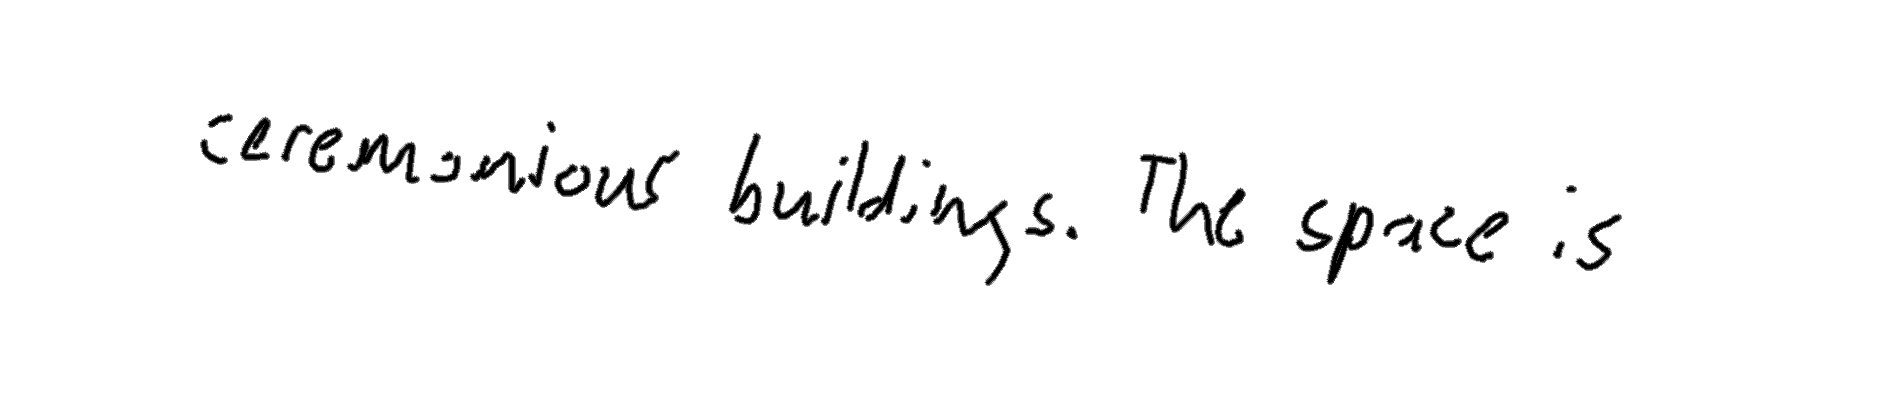 ceremonious buildings. The space is